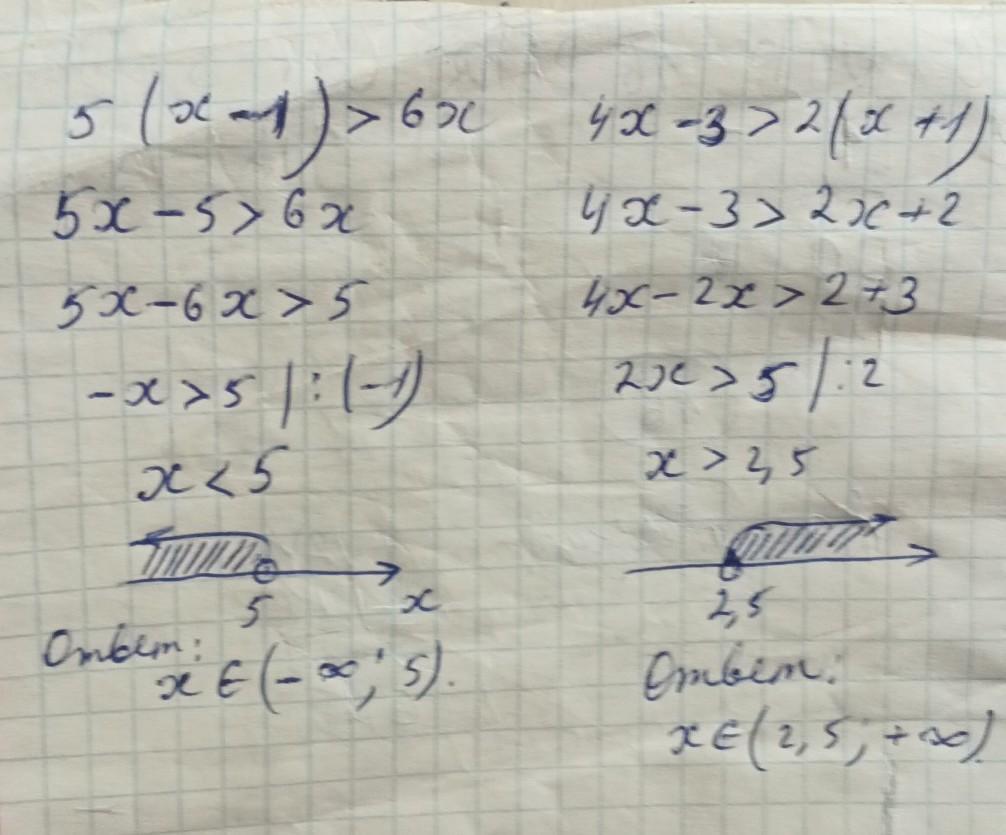 5(x-1)>6x
5x-5>6x
5x-6x>5
-x>5 |:(-1)
x<5
5 x
Ответ:
x∈(-∞; 5).
4x-3>2(x+1)
4x-3>2x+2
4x-2x>2+3
2x>5 |:2
x>2,5
2,5
Ответ:
x∈(2,5; +∞).